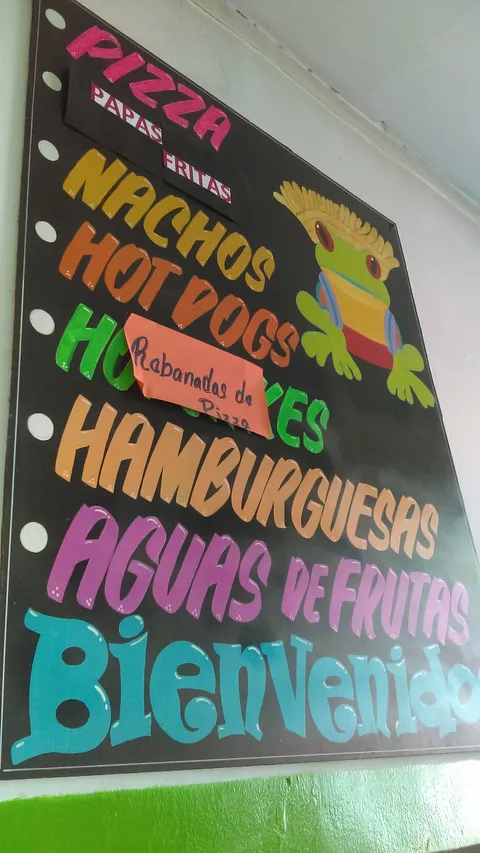 PIZZA
PAPAS
FRITAS
NACHOS
HOT DOGS
Rabanadas de
Pizza
HAMBURGUESAS
AGUAS DE FRUTAS
Bienvenido